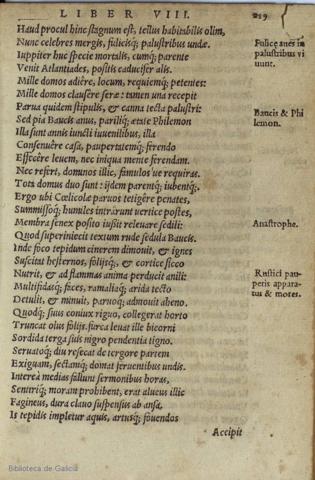 LIBER VIII. 219
Haud procul hinc stagnum est, tellus habitabilis olim,
Nunc celebres mergis, fulicisq; palustribus undæ.
Iuppiter huc specie mortali, cumq; parente
Venit Atlantiades, positis caducifer alis.
Mille domos adiêre, locum, requiemq; petentes:
Mille domos clausere seræ: tamen una recepit
Parua quidem stipulis, & canna tecta palustri:
Sed pia Baucis anus, pariliq; ætate Philemon
Illa sunt annis iuncti iuuenilibus, illa
Consenuêre casa, paupertatemq; ferendo
Effecêre leuem, nec iniqua mente ferendam.
Nec refert, dominos illic, famulos ue requiras.
Tota domus duo sunt: ijdem parentq; iubentq;.
Ergo ubi Cœlicolæ paruos tetigêre penates,
Summissoq; humiles intrârunt uertice postes,
Membra senex posito iussit releuare sedili:
Quod superiniecit textum rude sedula Baucis.
Inde foco tepidum cinerem dimouit, & ignes
Suscitat hesternos, folijsq;, & cortice sicco
Nutrit, & ad flammas anima perducit anili:
Multifidasq; faces, ramaliaq; arida tecto
Detulit, & minuit, paruoq; admouit aheno.
Quodq; suus coniux riguo, collegerat horto
Truncat olus folijs. furca leuat ille bicorni
Sordida terga suis nigro pendentia tigno.
Seruatoq; diu resecat de tergore partem
Exiguam, sectamq; domat feruentibus undis.
Interea medias fallunt sermonibus horas,
Sentiriq; moram prohibent, erat alueus illic
Fagineus, dura clauo suspensus ab ansa,
Is tepidis impletur aquis, artusq; fouendos
Accipit
Fulicę aues in
palustribus vi
uunt.
Baucis & Phi
lemon.
Anastrophe.
Rustici pau-
peris appara-
tus & mores.
Biblioteca de Galicia